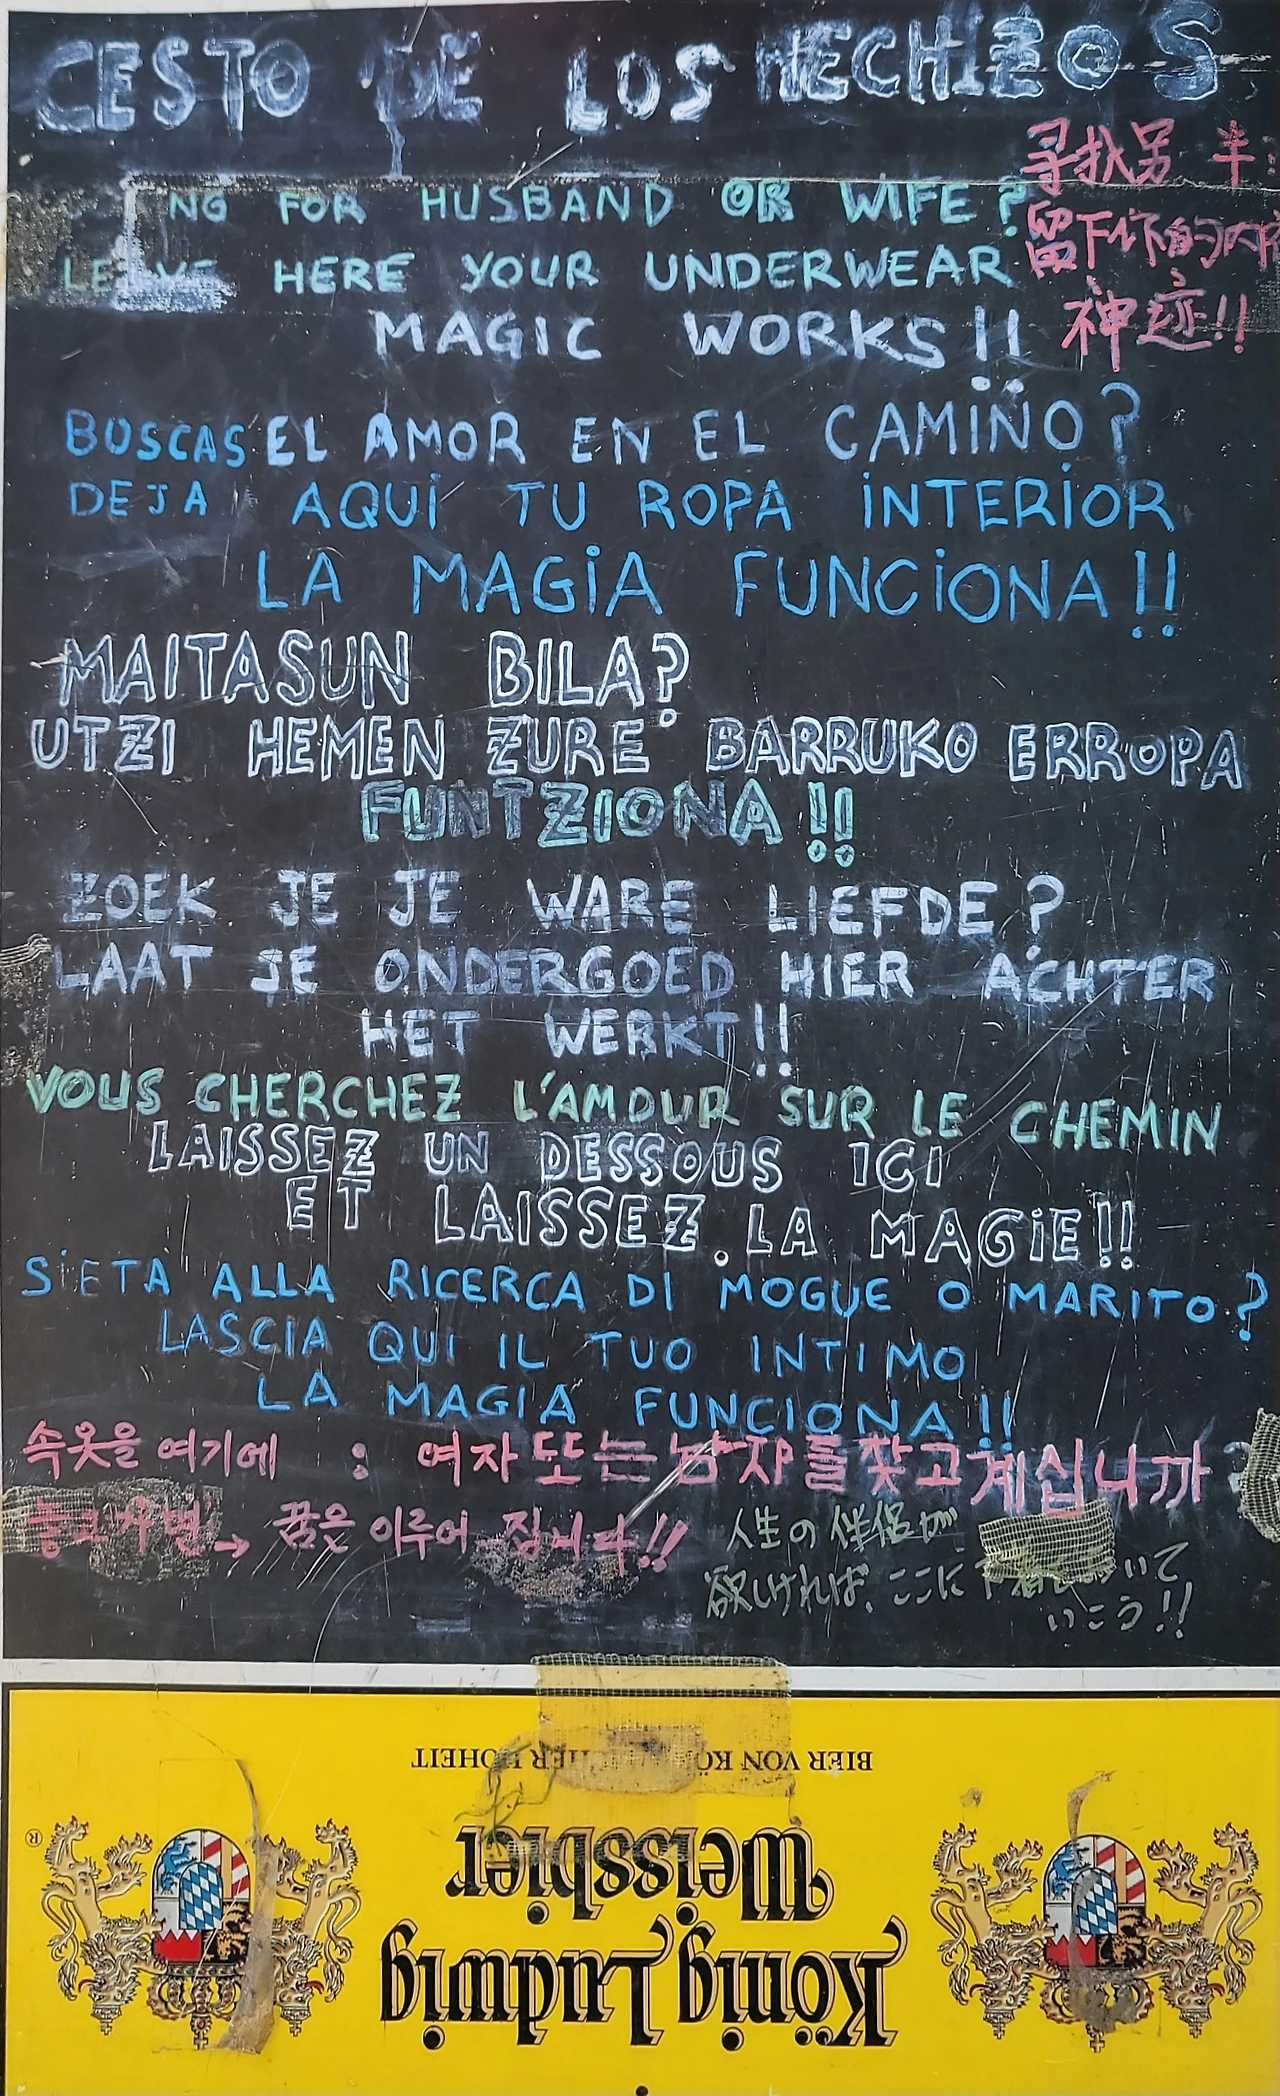 CESTO DE LOS HECHIZOS
寻找另 半:
NG FOR HUSBAND OR WIFE?
留下你的内
LEAVE HERE YOUR UNDERWEAR
神迹!!
MAGIC WORKS!!
BUSCAS EL AMOR EN EL CAMINO?
DEJA AQUI TU ROPA INTERIOR
LA MAGIA FUNCIONA!!
MAITASUN BILA?
UTZI HEMEN ZURE BARRUKO ERROPA
FUNTZIONA!!
ZOEK JE JE WARE LIEFDE?
LAAT JE ONDERGOED HIER ACHTER
HET WERKT!!
VOUS CHERCHEZ L'AMOUR SUR LE CHEMIN
LAISSEZ UN DESSOUS ICI
ET LAISSEZ. LA MAGIE!!
SIETA ALLA RICERCA DI MOGUE O MARITO?
LASCIA QUI IL TUO INTIMO
LA MAGIA FUNCIONA!!
속옷을 여기에 : 여자 또는 남자를 찾고 계십니까?
놓고가면→ 꿈은 이루어 집니다!!
人生の伴侶が
欲しければ、ここに下着をおいて
いこう!!
BIER VON KÖ CHER HOHEIT
Weissbier
König Ludwig
®